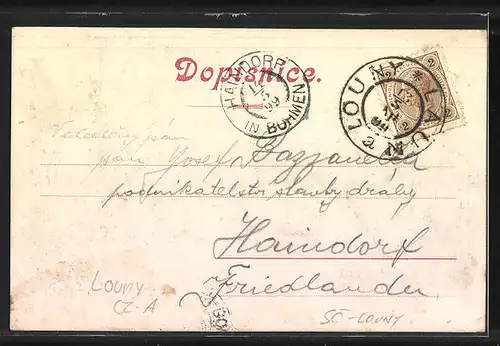 Dopisnice.
HAINDORF IN BÖHMEN
99
LOUNY * LAUN
2
2
Veledůstojný pán
pan Josef
podnikatelství stavby dráhy
Haindorf
Friedlander
Louny
CZ-A
SČ-LOUNY